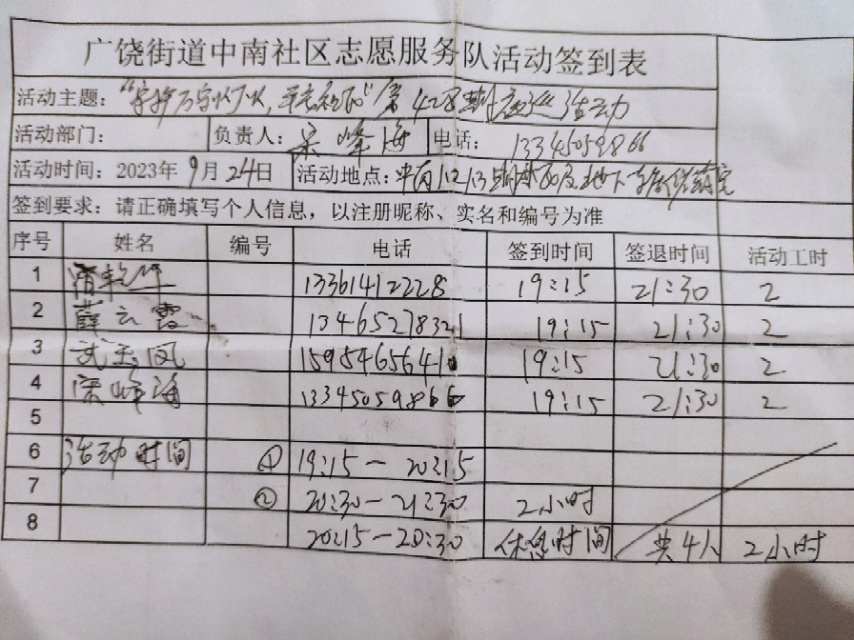 广饶街道中南社区志愿服务队活动签到表
活动主题：“守护万家灯火, 平安社区”第428期夜巡活动
活动部门： 负责人：宋峰海 电话： 13345059866
活动时间：2023年 9月 24日 活动地点：
签到要求：请正确填写个人信息，以注册昵称、实名和编号为准
序号 姓名 编号 电话 签到时间 签退时间 活动工时
1 13361412228 19:15 21:30 2
2 薛云霞 13465278321 19:15 21:30 2
3 武玉凤 15954656410 19:15 21:30 2
4 宋峰海 13345059866 19:15 21:30 2
5
6 活动时间 ① 19:15－20:15
7 ② 20:30－21:30 2小时
8 20:15－20:30 休息时间 共4人 2小时